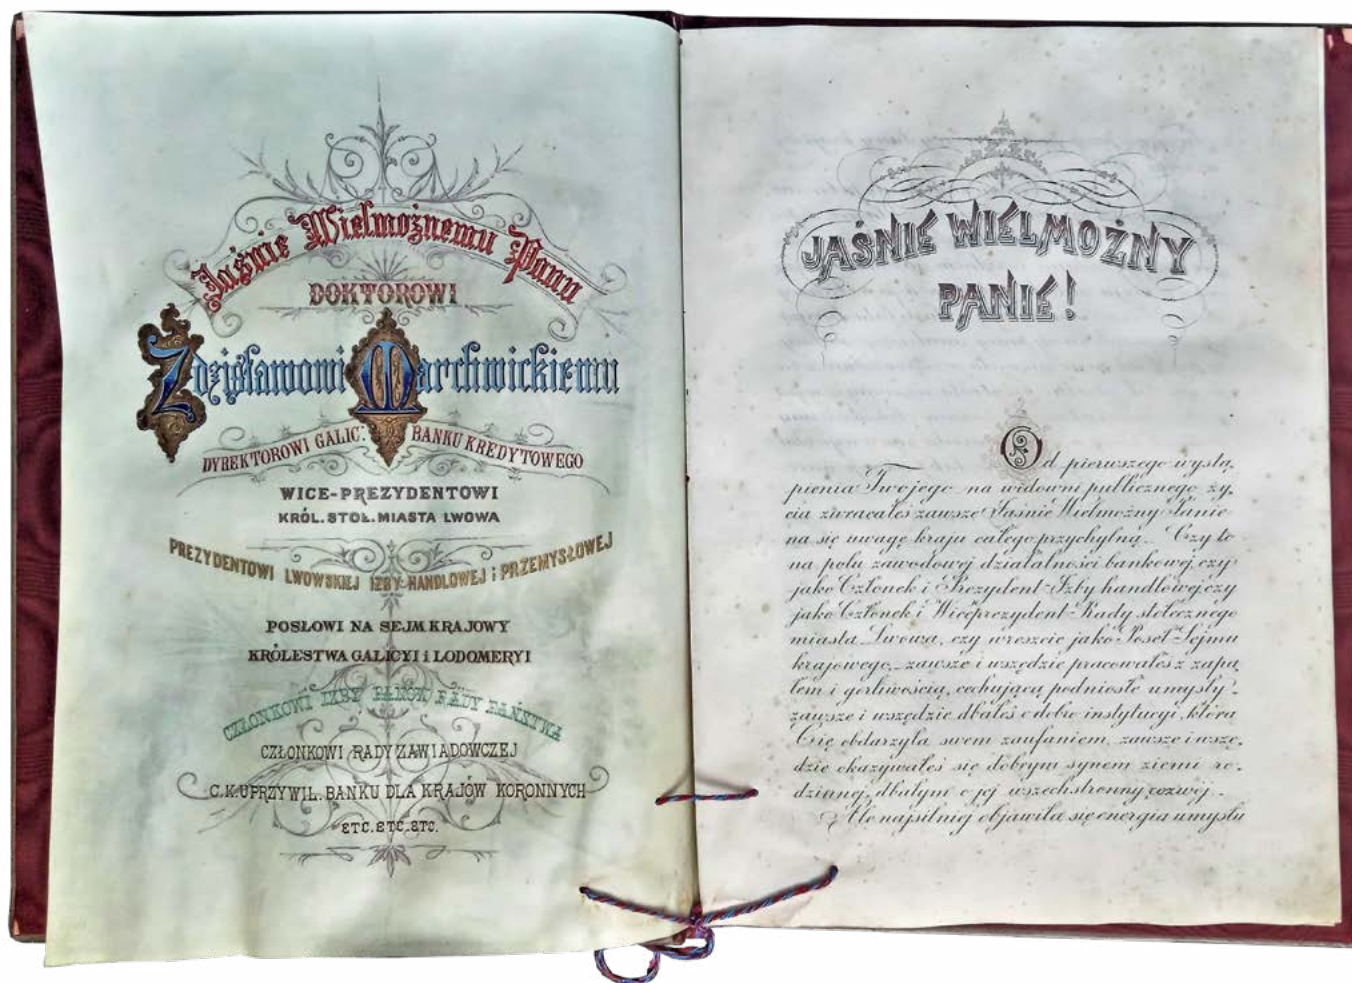 Jaśnie Wielmożnemu Panu
DOKTOROWI
Zdzisławowi Marchwickiemu
DYREKTOROWI GALIC: BANKU KREDYTOWEGO
WICE-PREZYDENTOWI
KRÓL. STOŁ. MIASTA LWOWA
PREZYDENTOWI LWOWSKIEJ IZBY HANDLOWEJ i PRZEMYSŁOWEJ
POSŁOWI NA SEJM KRAJOWY
KRÓLESTWA GALICYI i LODOMERYI
CZŁONKOWI IZBY PANÓW RADY PAŃSTWA
CZŁONKOWI RADY ZAWIADOWCZEJ
C. K. UPRZYWIL. BANKU DLA KRAJÓW KORONNYCH
ETC. ETC. ETC.
JAŚNIE WIELMOŻNY
PANIE!
Od pierwszego wystą,
pienia Twojego na widowni publicznego ży,
cia zwracałeś zawsze Jaśnie Wielmożny Panie
na się uwagę kraju całego przychylną. Czy to
na polu zawodowej działalności bankowej, czy
jako Członek i Prezydent Izby handlowej, czy
jako Członek i Wiceprezydent Rady stołecznego
miasta Lwowa, czy wreszcie jako Poseł Sejmu
krajowego, zawsze i wszędzie pracowałeś z zapa,
łem i gorliwością, cechującą podniosłe umysły,
zawsze i wszędzie dbałeś o dobro instytucyi, która
Cię obdarzyła swem zaufaniem, zawsze i wszę,
dzie okazywałeś się dobrym synem ziemi ro,
dzinnej, dbałym o jej wszechstronny rozwój.
Ale najsilniej objawiła się energia umysłu